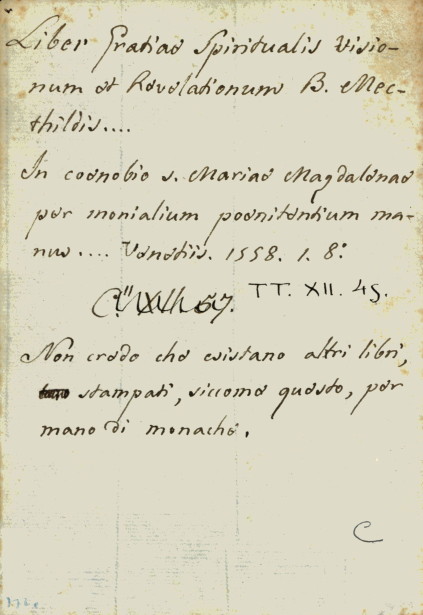 Liber Gratiae Spiritualis visio-
num et Revelationum B. Mec-
thildis....
In coenobio s. Mariae Magdalenae
per monialium poenitentium ma-
nus.... Venetiis. 1558. 1. 8.º
TT. XII. 45.
57.
Non credo che esistano altri libri,
stampati, siccome questo, per
mano di monache.
C